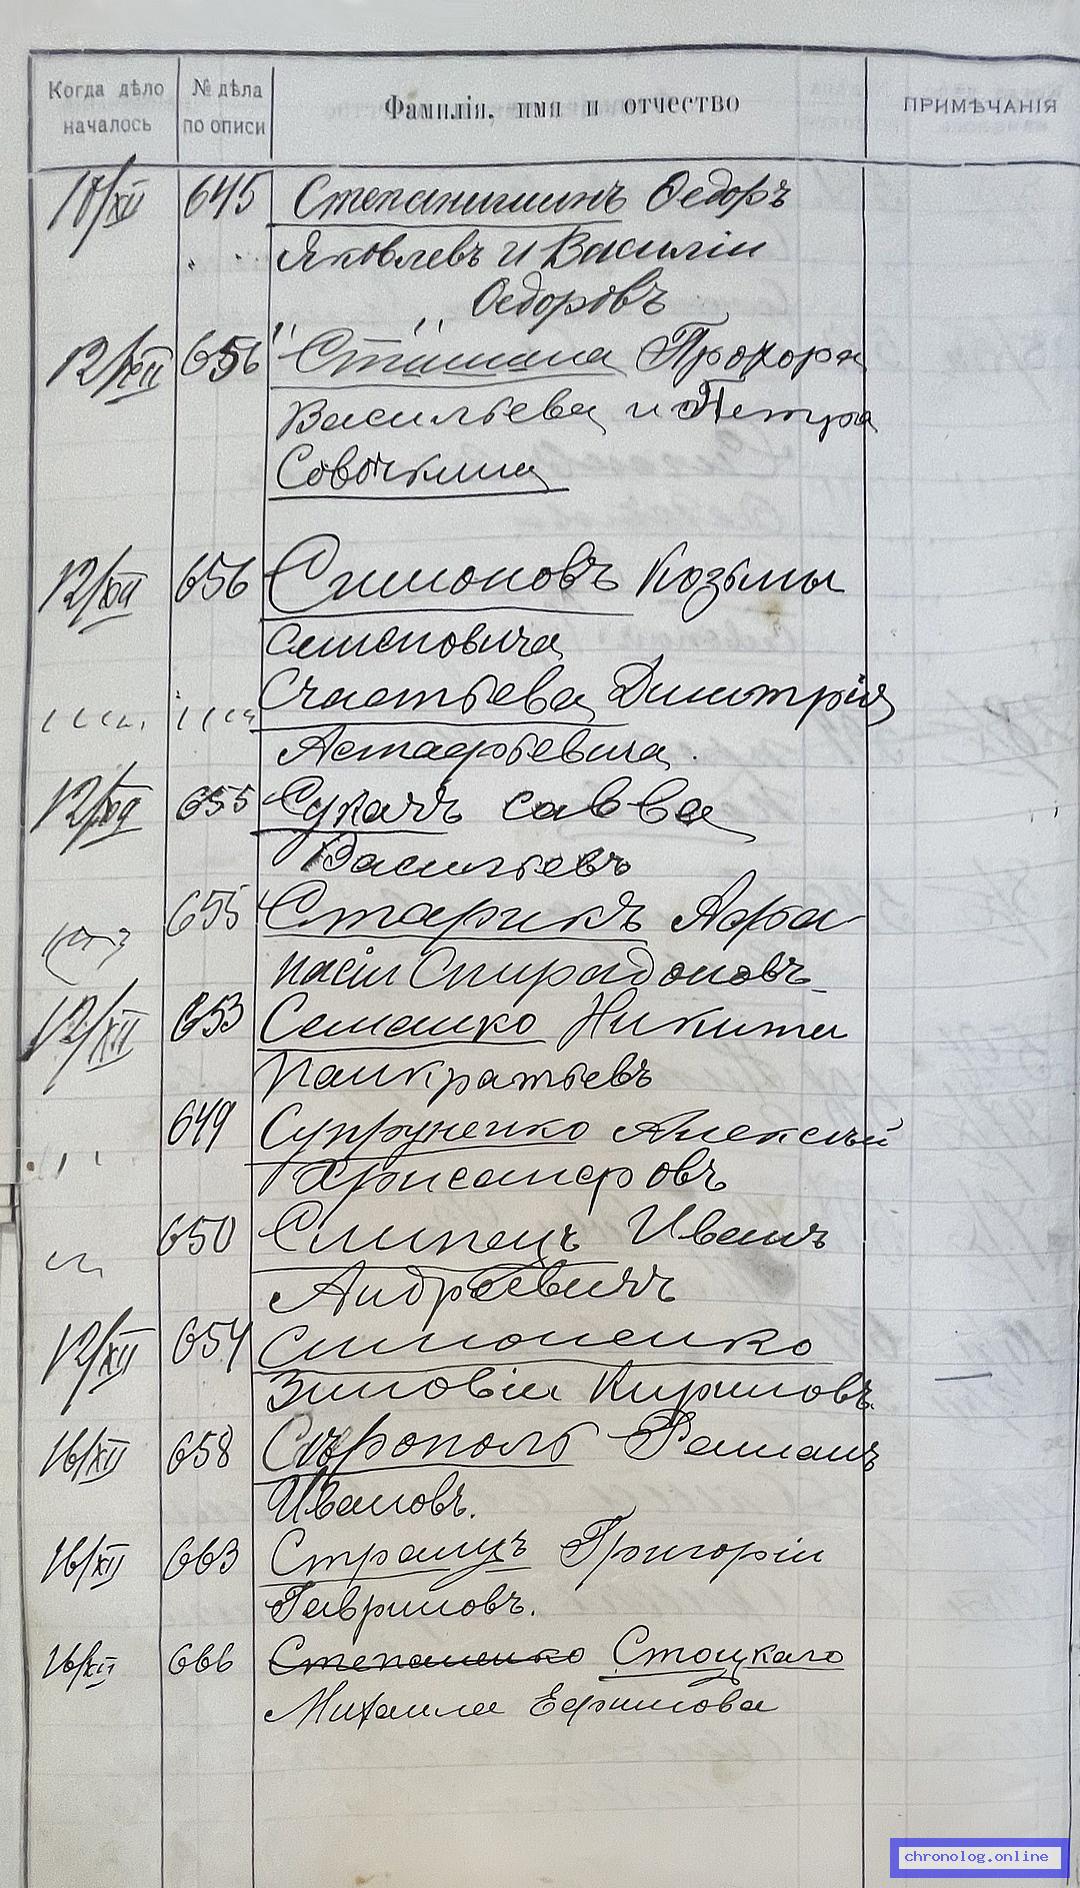 Когда дѣло началось
№ дѣла по описи
Фамилія, имя и отчество
ПРИМѢЧАНІЯ
10/XII 645 Степанишинъ Ѳедоръ
Яковлевъ и Василій
Ѳедоровъ
12/XII 656 Прохора
Васильева и Петра
Совочкина
12/XII 656 Симоновъ Козьмы
Семеновича
Счастьева Димитрія
Астафьевича
12/XII 655 Сукачъ Савва
Васильевъ
655 Старикъ Афа
насій Спиридоновъ
12/XII 653 Семашко Никита
Панкратьевъ
649 Супруненко Алексѣй
Хрисанфовъ
650 Слипецъ Иванъ
Андреевичъ
12/XII 654 Симоненко
Зиновій Кириловъ
16/XII 658 Романъ
Ивановъ.
16/XII 663 Странцъ Григорій
Гавриловъ.
16/XII 666 Степаненко Стоцкаго
Михаила Ефимова
chronolog.online